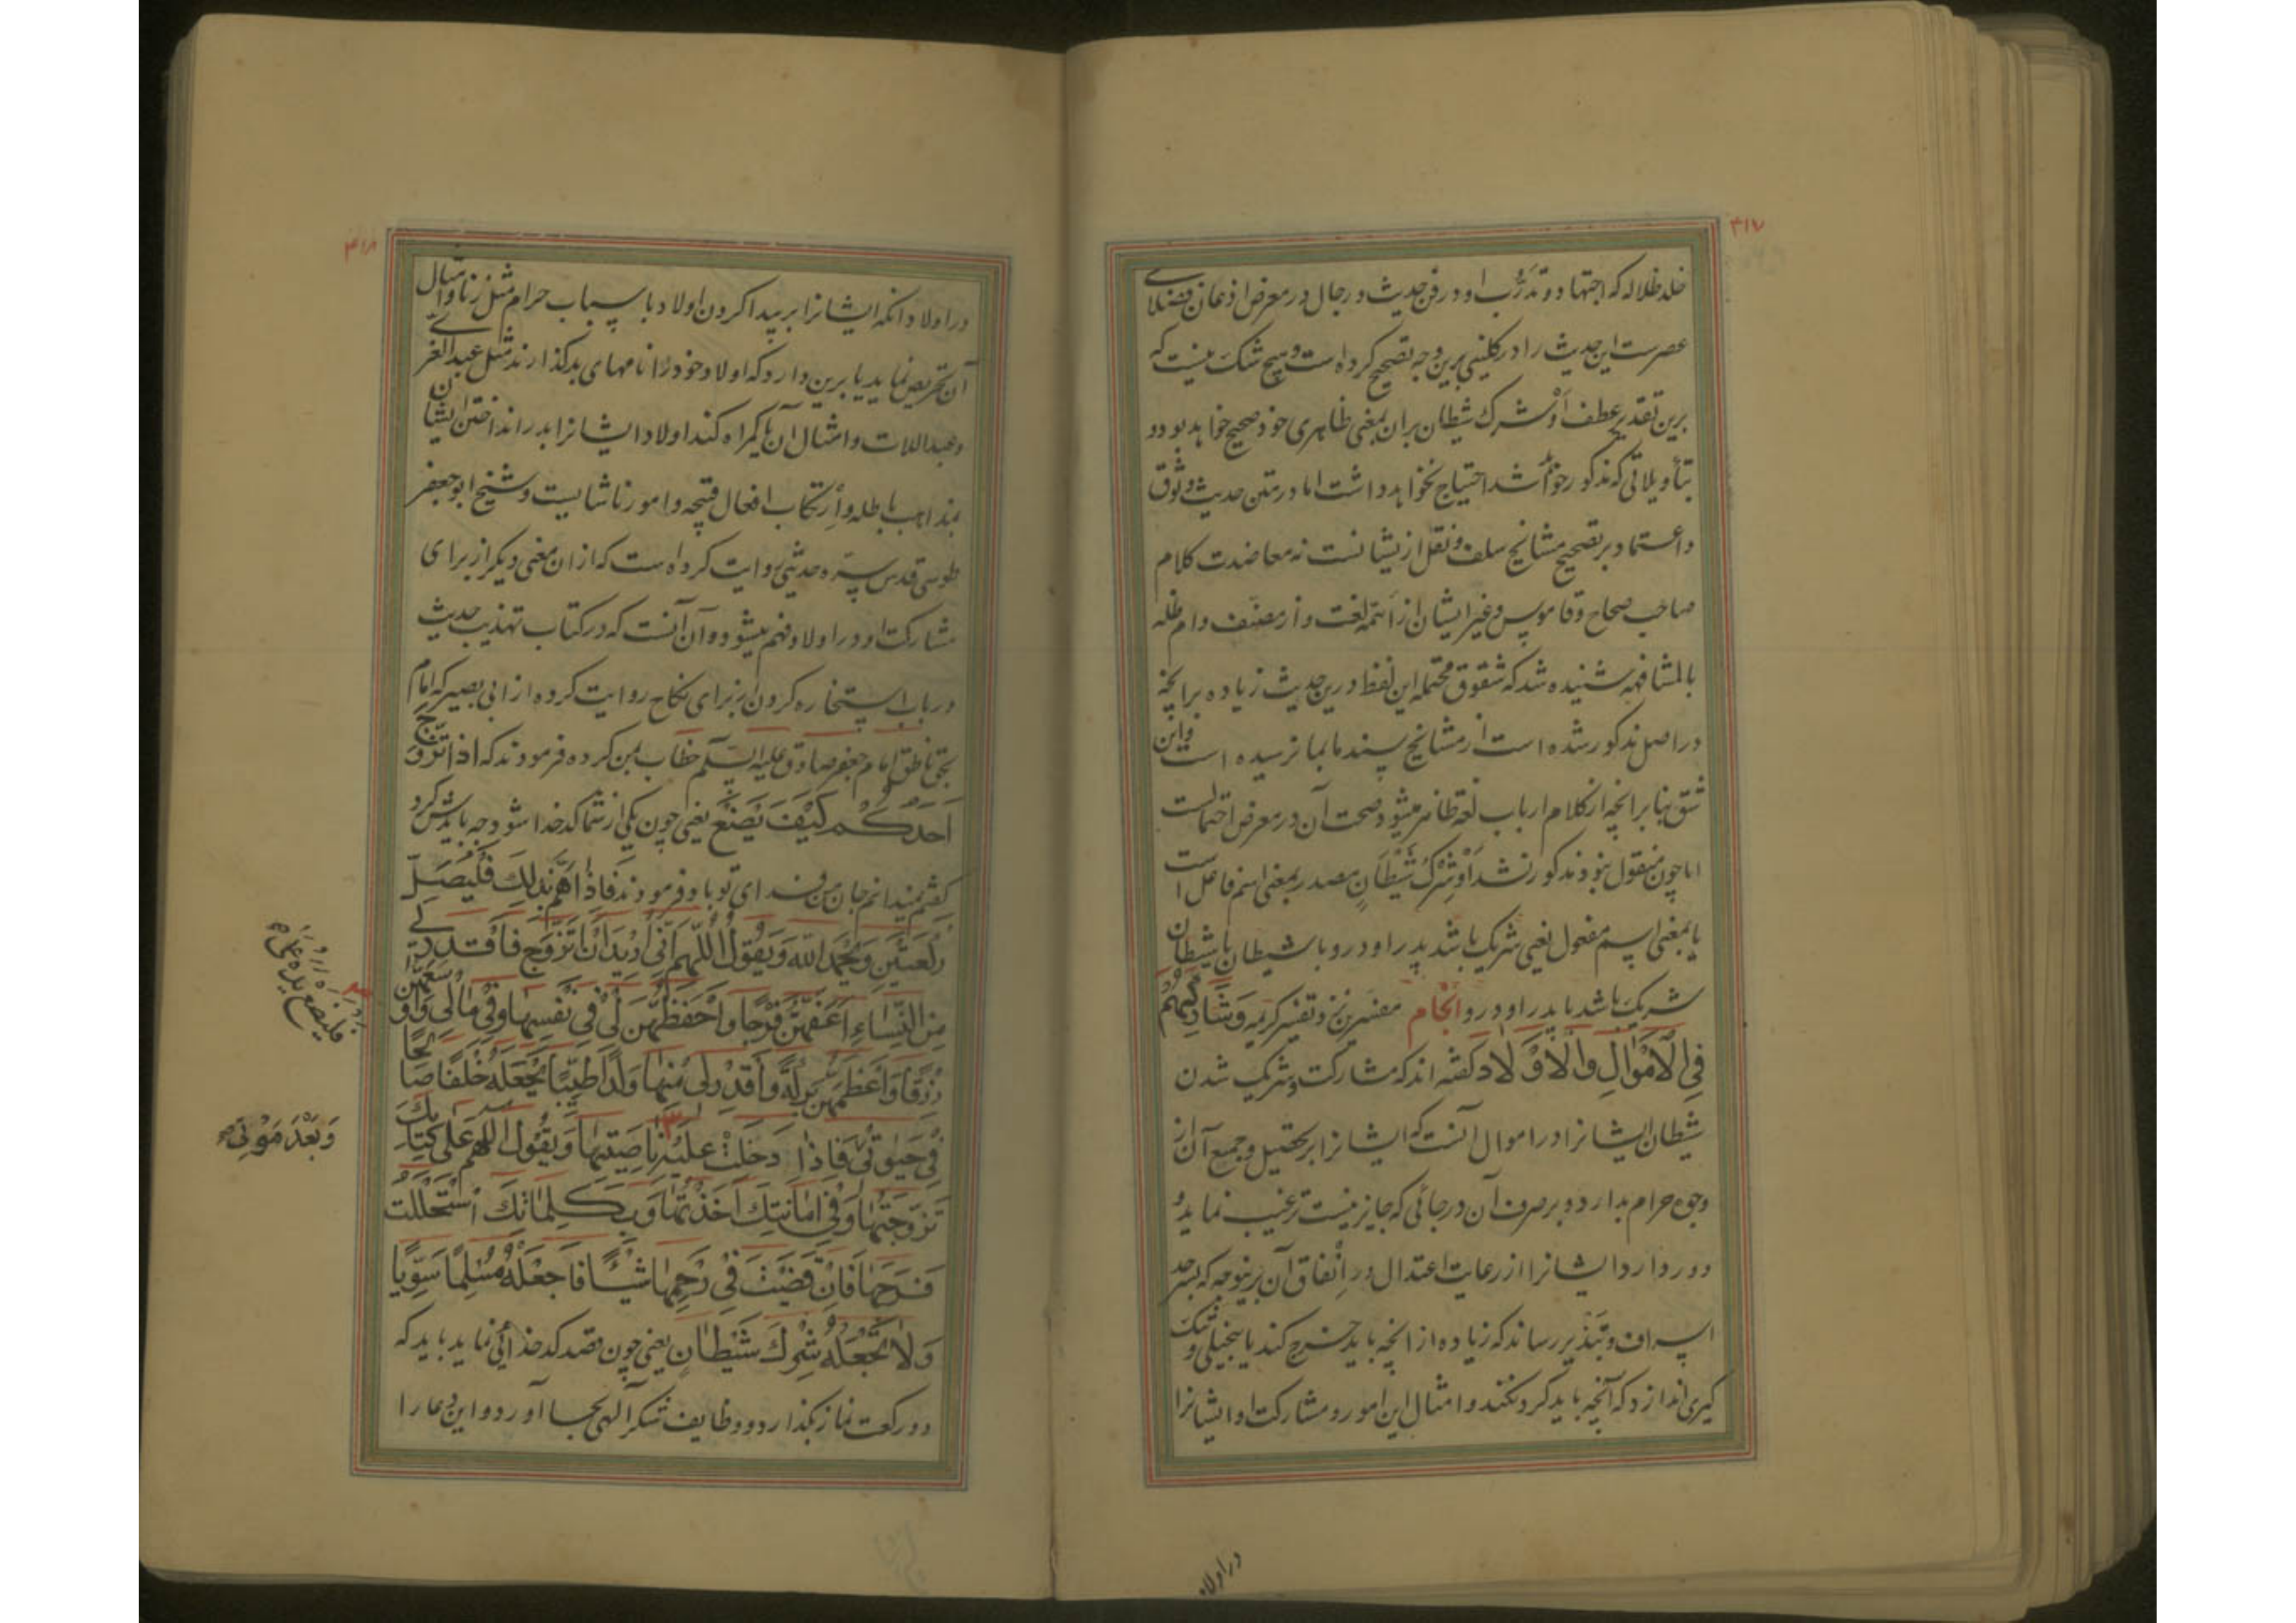 ۴۱۷
خلد ظلاله که اجتهاد و تدرّب او در فن حدیث و رجال در معرض اذعان فضلای
عصرست این حدیث را در کلینی برین وجه تصحیح کرده است و هیچ شک نیست که
برین تقدیر عطف او شرک شیطان بران بمعنی ظاهری خود صحیح خواهد بود و
بتأویلاتی که مذکور خواهد شد احتیاج نخواهد داشت اما در متن حدیث وثوق
و اعتماد بر تصحیح مشایخ سلف و نقل ازیشانست نه معاضدت کلام
صاحب صحاح و قاموس و غیر ایشان از ائمه لغت و از مصنف دام ظله
بالمشافهه شنیده شد که شقوق محتمله این لفظ درین حدیث زیاده برانچه
در اصل مذکور شده است از مشایخ سند ما بما نرسیده است و این
شق بنا برانچه از کلام ارباب لغة ظاهر میشود صحت آن در معرض احتمالست
اما چون منقول نبود مذکور نشد اَوْ شِرْكُ شَيْطَانٍ مصدر بمعنی اسم فاعل است
یا بمعنی اسم مفعول یعنی شریک باشد پدر او درو با شیطان یا شیطان
شریک باشد با پدر او درو انجام مفسرین در تفسیر کریمه وَشَارِكْهُمْ
فِي الْاَمْوَالِ وَالْاَوْلَادِ گفته اند که مشارکت و شریک شدن
شیطان ایشانرا در اموال آنست که ایشانرا بر تحصیل و جمع آن از
وجوه حرام بدارد و بر صرف آن در جائی که جایز نیست ترغیب نماید و
دور دارد ایشانرا از رعایت اعتدال در اِنْفاق آن برینوجه که بسرحد
اسراف و تبذیر رساند که زیاده از انچه باید خرج کند یا ببخیلی و تنک
کیری اندازد که آنچه باید کرد نکند و امثال این امور و مشارکت او ایشانرا
در اولاد
۴۱۸
در اولاد انکه ایشانرا بر پیدا کردن اولاد باسباب حرام مثل زنا و امثال
آن تحریص نماید یا برین دارد که اولاد خود را نامهای بد گذارند مثل عبد العزی
و عبد اللات و امثال آن یا گمراه کند اولاد ایشانرا بدر انداختن ایشان
بمذاهب باطله و اِرتکاب افعال قبیحه و امور ناشایست و شیخ ابو جعفر
طوسی قدس سره حدیثی روایت کرده است که ازان معنی دیگر از برای
مشارکت او در اولاد فهم میشود و آن آنست که در کتاب تهذیب حدیث
در باب استخاره کردن از برای نکاح روایت کرده از ابی بصیر که امام
بحق ناطق امام جعفر صادق علیه السلام خطاب بمن کرده فرمودند که اذا تَزَوَّجَ
اَحَدُكُمْ كَيْفَ يَصْنَعُ یعنی چون یکی از شما کدخدا شود چه بایدش کرد
گفتم نمیدانم جان من فدای تو باد فرمودند فَاِذَا هَمَّ بِذٰلِكَ فَلْيُصَلِّ
رَكْعَتَيْنِ وَيَحْمَدُ اللهَ وَيَقُولُ اَللّٰهُمَّ اِنّي اُرِيدُ اَنْ اَتَزَوَّجَ فَاقْدِرْ لِي
مِنَ النِّسَاءِ اَعَفَّهُنَّ فَرْجًا وَاَحْفَظَهُنَّ لِي فِي نَفْسِهَا وَفِي مَالِي وَاَوْسَعَهُنَّ
رِزْقًا وَاَعْظَمَهُنَّ بَرَكَةً وَاَقْدِرْ لِي مِنْهَا وَلَدًا طَيِّبًا تَجْعَلُهُ خَلَفًا صَالِحًا
فِي حَيوتِي فَاِذَا دَخَلَتْ عَلَيْهِ نَاصِيَتِهَا وَيَقُولُ اللهم عَلٰى كِتَابِكَ
تَزَوَّجْتُهَا وَفِي اَمَانَتِكَ اَخَذْتُهَا وَبِكَلِمَاتِكَ اسْتَحْلَلْتُ
فَرْجَهَا فَاِنْ قَضَيْتَ فِي رَحِمِهَا شَيْئًا فَاجْعَلْهُ مُسْلِمًا سَوِيًّا
وَلَا تَجْعَلْهُ شِرْكَ شَيْطَانٍ یعنی چون قصد کدخدائی نماید باید که
دو رکعت نماز بگذارد و وظایف شکر الهی بجا آورد و این دعا را
فليضع يده على
وَبَعْدَ مَوْتِي